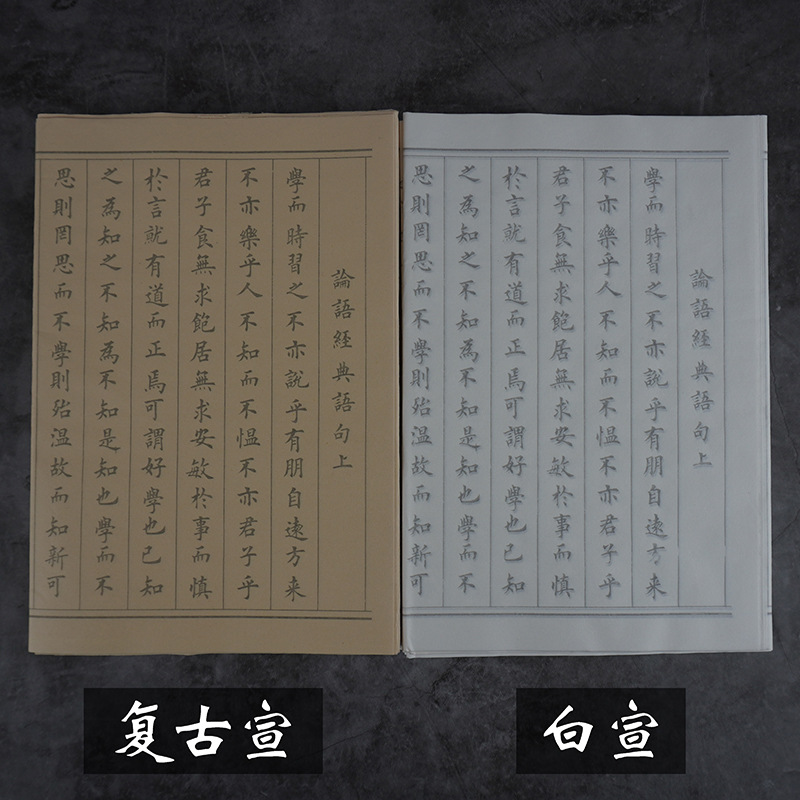 論語經典語句上
學而時習之不亦說乎有朋自遠方来
不亦樂乎人不知而不愠不亦君子乎
君子食無求飽居無求安敏於事而慎
於言就有道而正焉可謂好學也已知
之為知之不知為不知是知也學而不
思則罔思而不學則殆温故而知新可
論語經典語句上
學而時習之不亦說乎有朋自遠方来
不亦樂乎人不知而不愠不亦君子乎
君子食無求飽居無求安敏於事而慎
於言就有道而正焉可謂好學也已知
之為知之不知為不知是知也學而不
思則罔思而不學則殆温故而知新可
复古宣
白宣